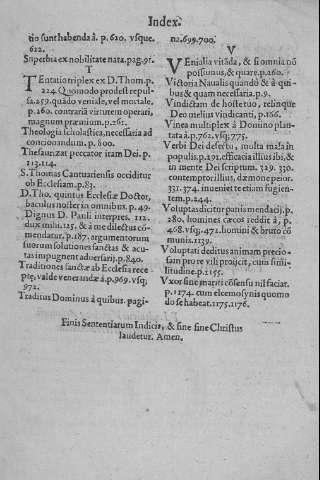 Index.
tio sunt habenda à. p. 620. vsque.
622.
Superbia ex nobilitate nata. pag. 91.
T
TEntatio triplex ex D. Thom. p.
224. Quomodo prodest repul-
sa. 259. quãdo veniale, vel mortale.
p. 260. contrariã virtutem operari,
magnum præmium. p. 261.
Theologia scholastica, necessaria ad
concionandum. p. 800.
Thesaurizat peccator iram Dei. p.
113. 114.
S. Thomas Cantuariensis occiditur
ob Ecclesiam. p. 83.
D. Tho. quintus Ecclesiæ Doctor,
baculus noster in omnibus. p. 49.
Dignus D. Pauli interpres. 112.
dux mihi. 125. & à me dilectus cõ-
mendatur. p. 187. argumentorum
suorum solutiones sanctas & acu-
tas impugnent aduersarij. p. 840.
Traditiones sanctæ ab Ecclesia rece
ptę, valde venerandæ à p. 969. vsq;
972.
Traditus Dominus à quibus. pagi-
na. 699. 700.
V
VEnialia vitãda, & si omnia nõ
possunus, & quare. p. 260.
Victoria Naualis quando & à qui-
bus & quam necessaria. p. 9.
Vindictam de hoste tuo, relinque
Deo melius vindicanti, p. 186.
Vinea multiplex à Domino plan-
tata à. p. 762. vsq; 775.
Verbi Dei desertu, multa mala in
populis. p. 191. efficacia illius ibi, &
in mente Dei scriptum. 329. 330.
contemptor illius, dæmone peior.
331. 374. inueniet te etiam fugien-
tem. p. 244.
Voluptas dicitur panis mendacij. p.
280. homines cæcos reddit à, p.
468. vsq; 472. homini & bruto cõ
munis. 1139.
Voluptati deditus animam precio-
sam pro re vili proijcit, cum simi-
litudine. p. 1155.
Vxor sine mariti cõsensu nil faciat.
p. 1174. cum elcemosynis quomo
do se habeat. 1175. 1176.
Finis Sententiarum Indicis, & sine fine Christus
laudetur. Amen.